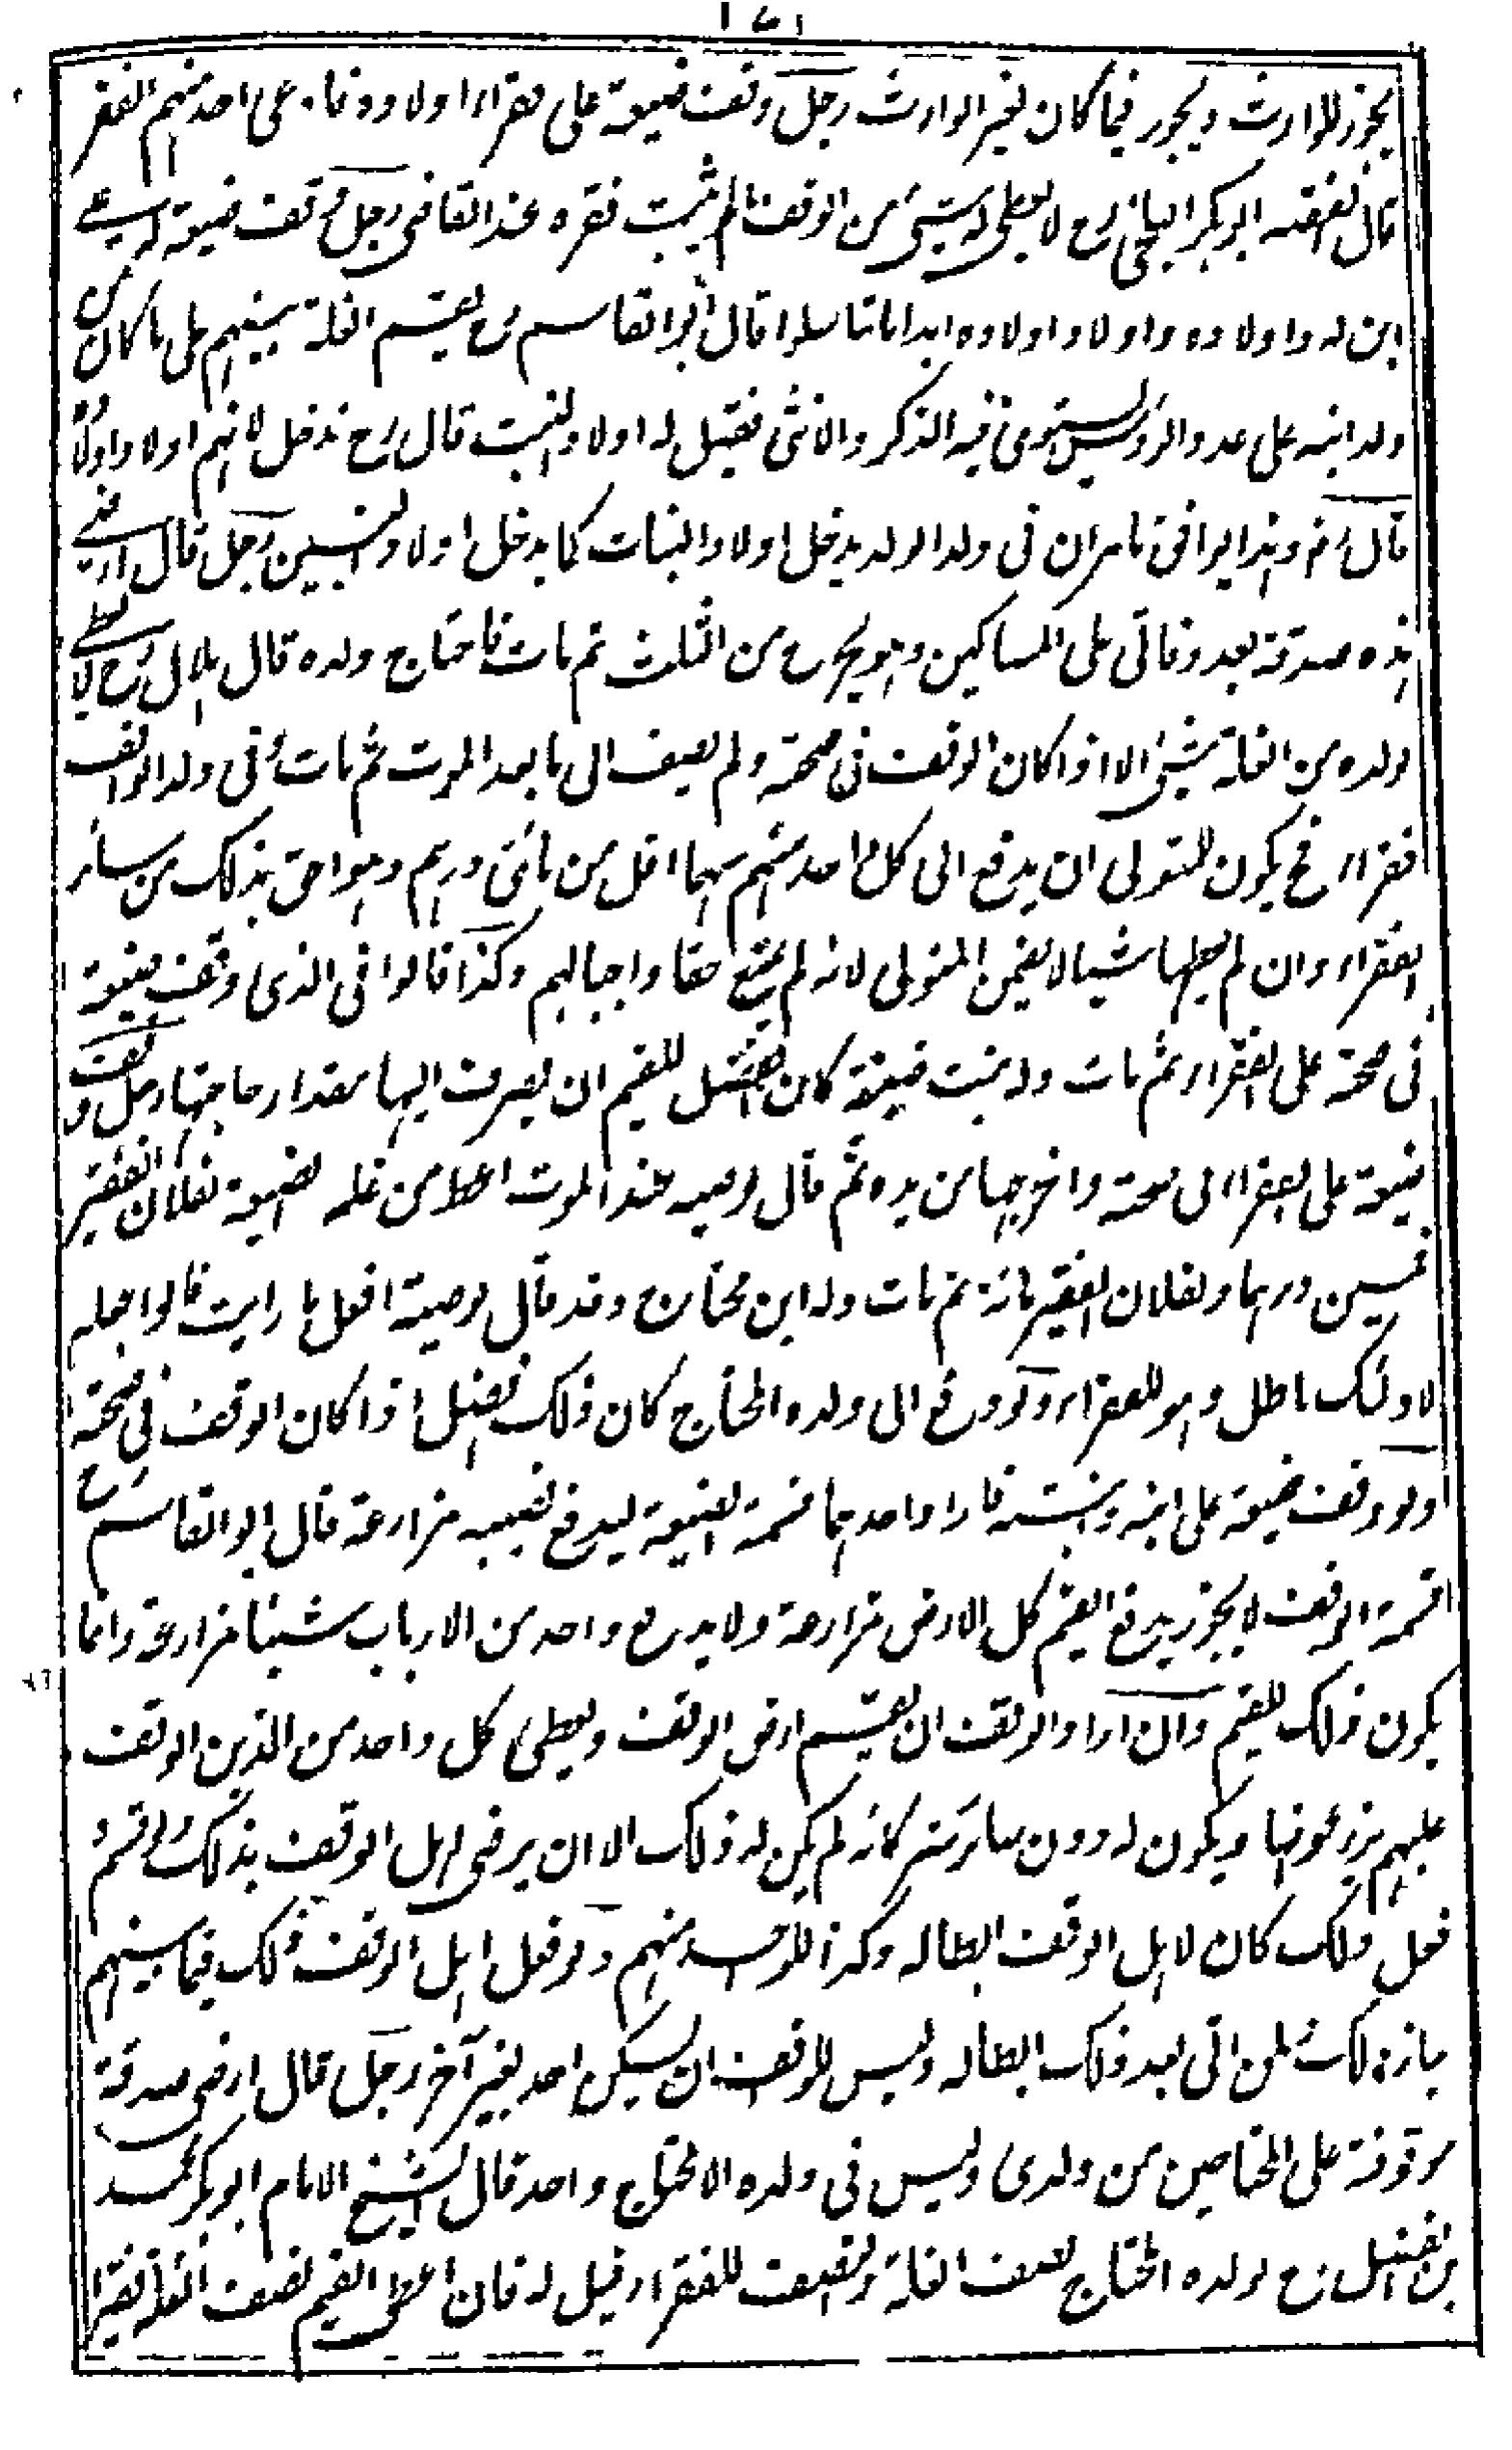 ١٤١
يجوز للوارث ويجوز فيما كان لغير الوارث رجل وقف ضيعة على فقراء اولاده فادعى احد منهم الفقر
قال الفقيه ابو بكر البلخى رح لا يعطى له شئ من الوقف ما لم يثبت فقره عند القاضى رجل وقف ضيعة له على
ابن له واولاده واولاد اولاده ابدا ما تناسلوا قال ابو القاسم رح يقسم الغلة بينهم على ما كان من
ولد ابنه على عدد الرؤس يستوى فيه الذكر والانثى فقيل له اولاد البنت قال رح تدخل لانهم اولاد اولاده
قال رض وهذا يوافق ما مر ان فى ولد الولد يدخل اولاد البنات كما يدخل اولاد البنين رجل قال ارضى
هذه صدقة بعد وفاتى على المساكين وهو يخرج من الثلث ثم مات فاحتاج ولده قال هلال رح لا يعطى
ولده من الغلة شئ الا اذا كان الوقف فى صحته ولم يضف الى ما بعد الموت ثم مات وفى ولد الواقف
فقراء فح يكون للمتولى ان يدفع الى كل واحد منهم سهما اقل من مائتى درهم وهو احق بذلك من سائر
الفقراء وان لم يعطها شيئا لا يضمن المتولى لانه لم يمنع حقا واجبا لهم وكذا قالوا فى الذى وقف ضيعة
فى صحته على الفقراء ثم مات وله بنت ضعيفة كان الافضل للقيم ان يصرف اليها مقدار حاجتها رجل وقف
ضيعة على الفقراء فى صحته واخرجها من يده ثم قال لوصيه عند الموت اعط من غلة الضيعة لفلان الفقير
خمسين درهما ولفلان الفقير مائة ثم مات وله ابن محتاج وقد قال لوصيه افعل ما رايت قالوا جعله
لاولئك باطل وهو للفقراء ولو دفع الى ولده المحتاج كان ذلك افضل اذا كان الوقف فى صحته
ولو وقف ضيعة على ابنه وبنته فاراد احدهما قسمة الضيعة ليدفع نصيبه مزارعة قال ابو القاسم رح
قسمة الوقف لا يجوز يدفع القيم كل الارض مزارعة ولا يدفع واحد من الارباب شيئا مزارعة وانما
يكون ذلك للقيم وان اراد الواقف ان يقسم ارض الوقف ويعطى كل واحد من الذين الوقف
عليهم يزرعونها ويكون له دون سائر شركائه لم يكن له ذلك الا ان يرضى اهل الوقف بذلك ولو قسم و
فعل ذلك كان لاهل الوقف ابطاله وكذا لواحد منهم ولو فعل اهل الوقف ذلك فيما بينهم
جاز ذلك ولمن ابى بعد ذلك ابطاله وليس للواقف ان يسكن احد بغير آخر رجل قال ارضى صدقة
موقوفة على المحتاجين من ولدى وليس فى ولده الا محتاج واحد قال الشيخ الامام ابو بكر محمد
بن الفضل رح لولده المحتاج نصف الغلة والنصف للفقراء قيل له فان اعطى القيم نصف الغلة فقيرا